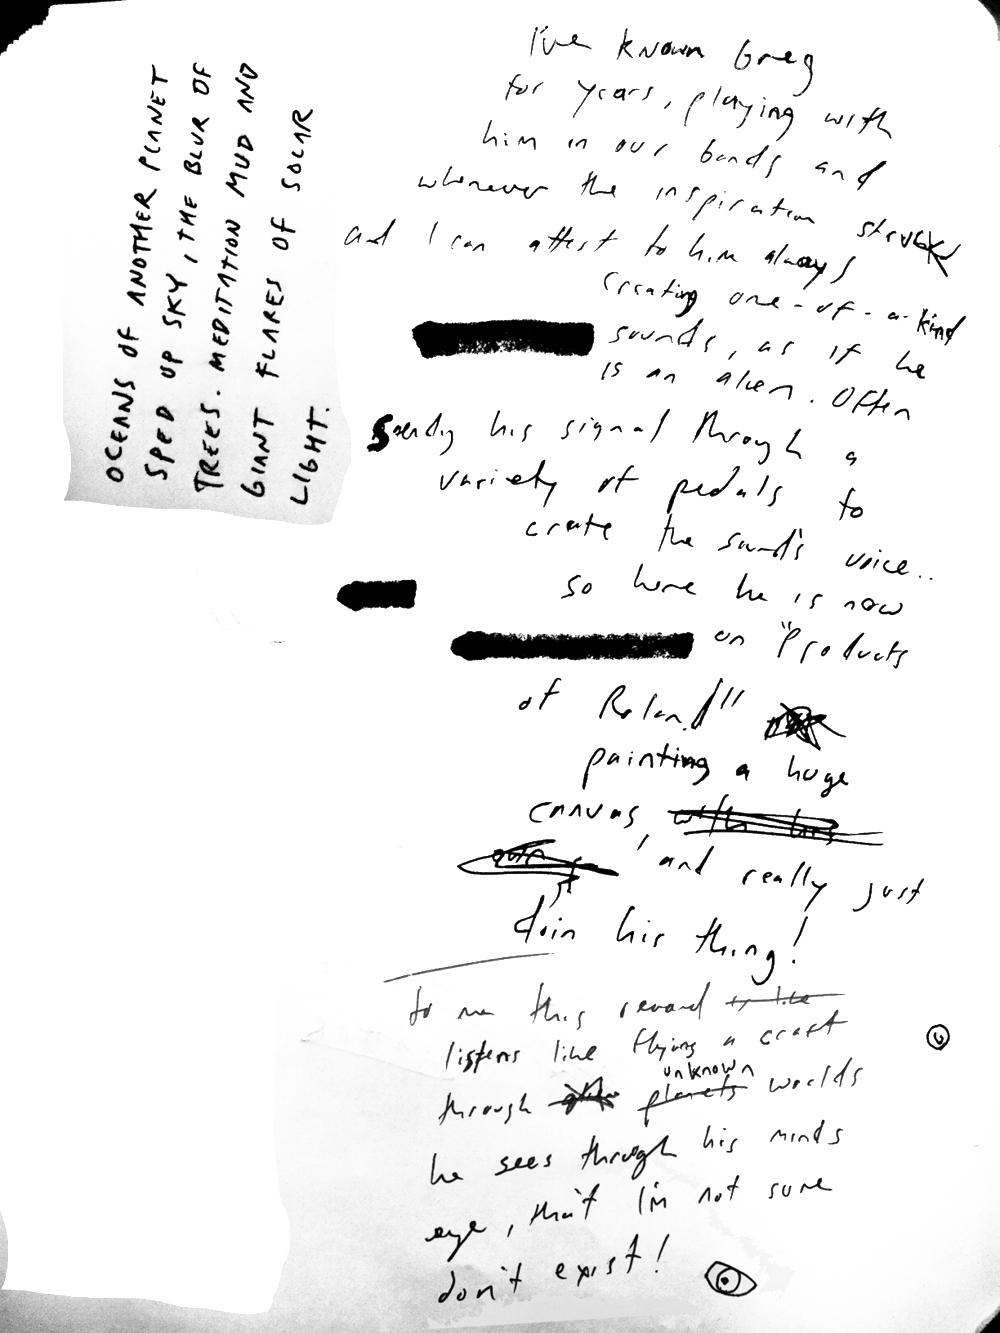 OCEANS OF ANOTHER PLANET
SPED UP SKY, THE BLUR OF
TREES. MEDITATION MUD AND
GIANT FLARES OF SOLAR
LIGHT.
I've known Greg
for years, playing with
him in our bands and
whenever the inspiration struck
and I can attest to him always
creating one-of-a-kind
sounds, as if he
is an alien. Often
sending his signal through a
variety of pedals to
create the sound's voice..
so here he is now
on "Products
of Roland"
painting a huge
canvas, with his
own
, and really just
doin his thing!
to me this record is like
listens like flying a craft
unknown
through planets worlds
he sees through his minds
eye, that I'm not sure
don't exist!